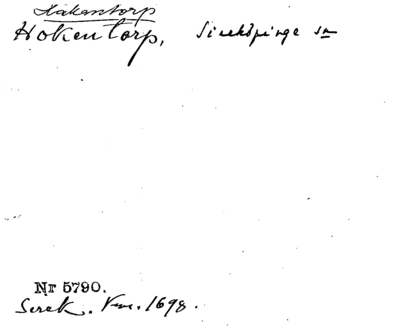 Håkantorp
Hokentorp, Sireköpinge sn
Nr 5790.
Serek. Vm. 1698.